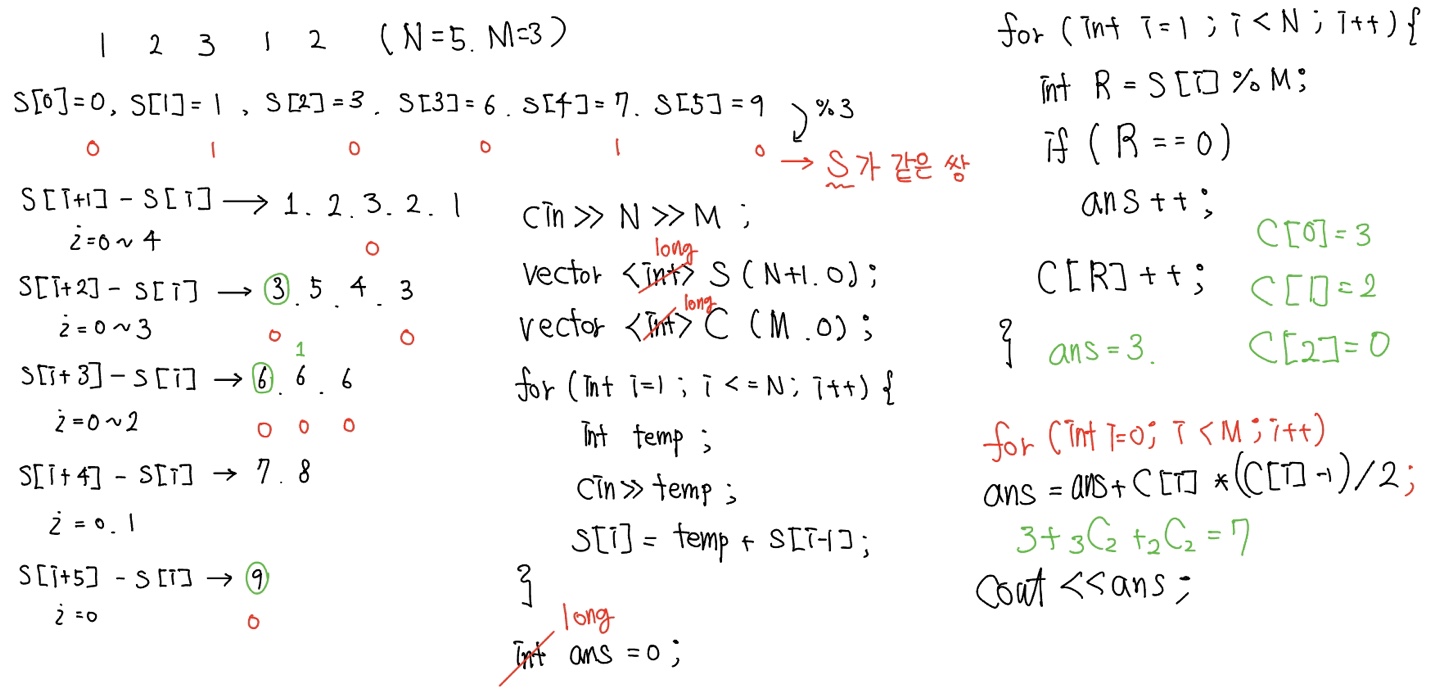 1 2 3 1 2 (N=5. M=3)
S[0]=0, S[1]=1, S[2]=3. S[3]=6. S[4]=7. S[5]=9 %3
0 1 0 0 1 0 → S가 같은 쌍
S[i+1] - S[i] → 1. 2. 3. 2. 1
i=0~4
0
S[i+2] - S[i] → 3. 5. 4. 3
i=0~3
0 0
1
S[i+3] - S[i] → 6. 6. 6
i=0~2
0 0 0
S[i+4] - S[i] → 7. 8
i=0.1
S[i+5] - S[i] → 9
i=0
0
cin>>N>>M;
long
vector <int> S(N+1.0);
long
vector <int> C (M.0);
for (int i=1; i<=N; i++) {
int temp;
cin>>temp;
S[i] = temp + S[i-1];
}
long
int ans=0;
for (int i=1; i<N; i++){
int R = S[i]%M;
if (R==0)
ans++;
C[R]++;
}
ans=3.
C[0]=3
C[1]=2
C[2]=0
for (int i=0; i<M; i++)
ans=ans+C[i]*(C[i]-1)/2;
3+₃C₂+₂C₂=7
cout <<ans;